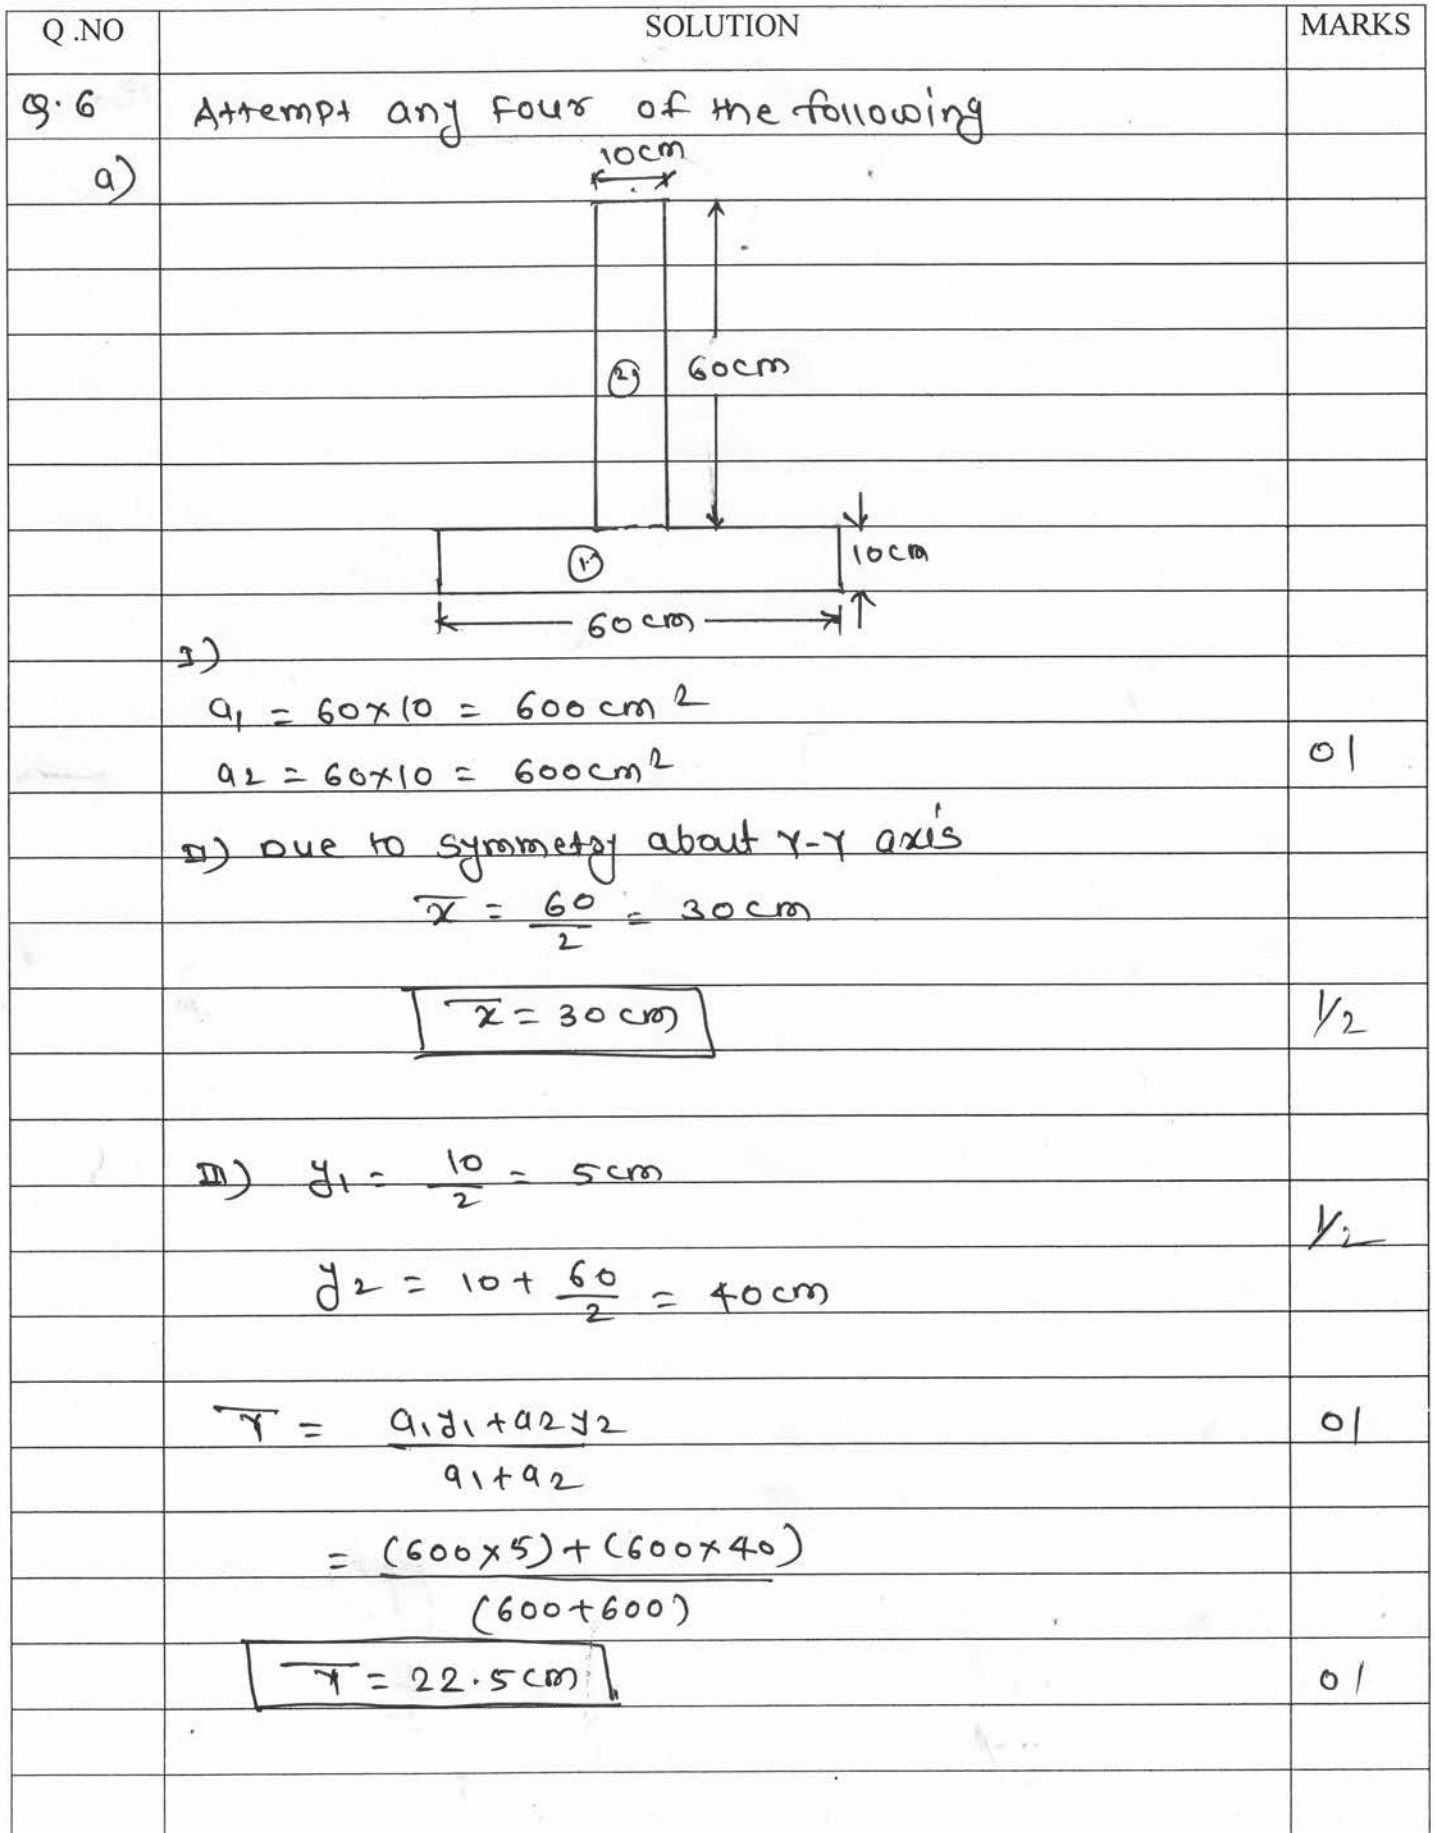 Q .NO SOLUTION MARKS
Q.6 Attempt any Four of the following
a)
10cm
② 60cm
① 10cm
60cm
I)
a₁ = 60×10 = 600 cm²
a2 = 60×10 = 600cm² 01
II) Due to symmetry about Y-Y axis
x̅ = 60/2 = 30cm
x̅ = 30 cm 1/2
III) y₁ = 10/2 = 5cm
1/2
y₂ = 10 + 60/2 = 40cm
Y̅ = a₁y₁ + a2y2 01
a₁ + a₂
= (600×5) + (600×40)
(600+600)
Y̅ = 22.5cm 01